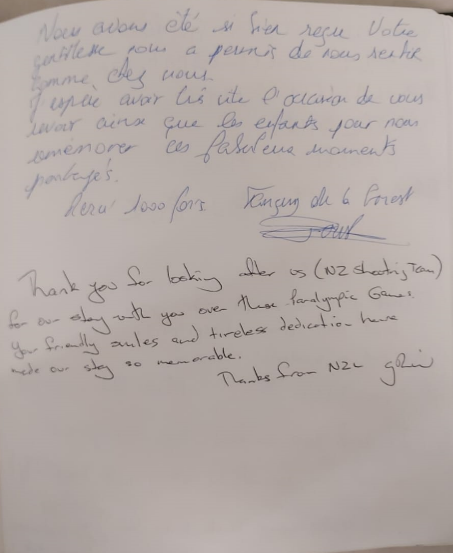 Nous avons été si bien reçue Votre
gentillesse nous a permis de nous sentir
comme chez nous.
J'espère avoir très vite l'occasion de vous
revoir ainsi que les enfants pour nous
remémorer ces fabuleux moments
partagés.
Merci 1000 fois. Tanguy de la Forest
Thank you for looking after us (NZ Shooting Team)
for our stay with you over these Paralympic Games.
Your friendly smiles and tireless dedication have
made our stay so memorable.
Thanks from NZL